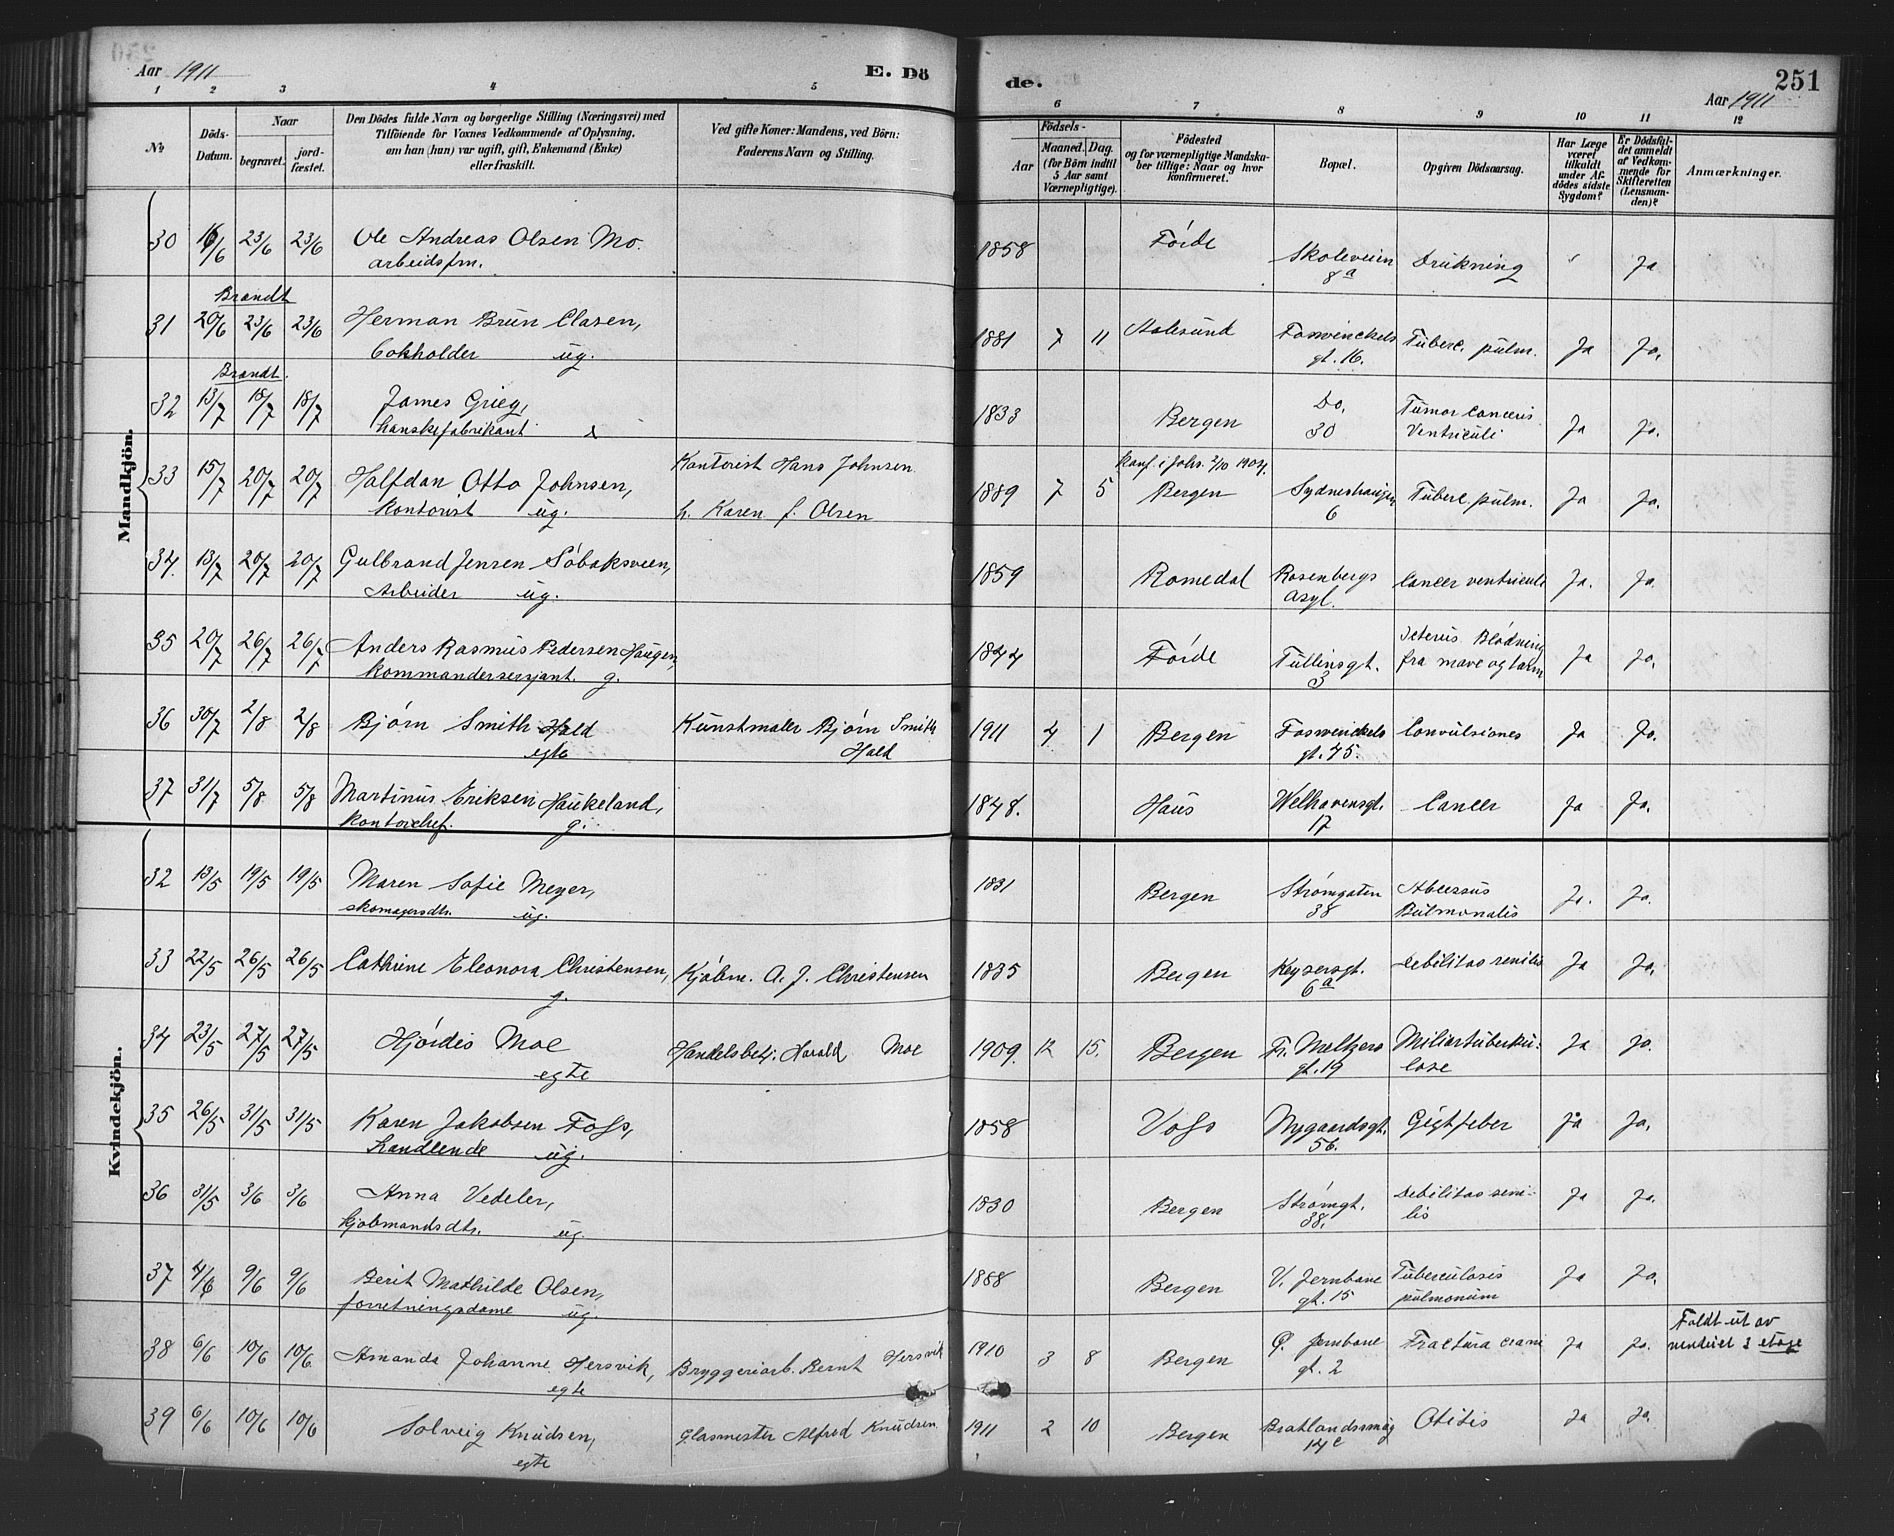 Aar 1911
E. Dö
de.
251
Aar 1911
1 2 3 4 5 6 7 8 9 10 11 12
No
Döds-Datum.
Naar
begravet.
jord-fæstet.
Den Dödes fulde Navn og borgerlige Stilling (Næringsvei) med
Tilföiende for Voxnes Vedkommende af Oplysning,
om han (hun) var ugift, gift, Enkemand (Enke)
eller fraskilt.
Ved gifte Koner: Mandens, ved Börn:
Faderens Navn og Stilling.
Födsels-
Aar
Maaned. Dag.
(for Börn indtil
5 Aar samt
Værnepligtige).
Födested
og for værnepligtige Mandska-
ber tillige: Naar og hvor
konfirmeret.
Bopæl.
Opgiven Dödsaarsag.
Har Læge
været
tilkaldt
under Af-
dödes sidste
Sygdom?
Er Dödsfal-
det anmeldt
af Vedkom-
mende for
Skifteretten
(Lensman-
den)?
Anmærkninger.
Mandkjön.
30 16/6 23/6 23/6 Ole Andreas Olsen Mo. 1858 Förde Skoleveien 8a Drukning Ja
arbeidsfm.
Brændt
31 20/6 23/6 23/6 Herman Brun Clasen, 1881 7 11 Aalesund Fosswinckels gt. 16. Tuberc. pulm. Ja Ja.
ug.
Brændt.
32 13/7 18/7 18/7 James Grieg, 1833 Bergen Do. 30 Tumor Canceris Ventriculi Ja Ja.
hanskefabrikant
33 15/7 20/7 20/7 Halfdan Otto Johnsen, Kontorist Hans Johnsen 1889 7 5 Konf. i Johs. 2/10 1904. Bergen Sydneshaugen 6 Tuberc. pulm. Ja Ja.
kontorist ug. h. Karen f. Olsen
34. 13/7 20/7 20/7 Gulbrand Jensen Söbaksveen, 1859 Romedal Rosenbergs Asyl. Cancer ventriculi Ja. Ja.
Arbeider ug.
35 20/7 26/7 26/7 Anders Rasmus Pedersen Haugen, 1844 Förde Tullinsgt. 3 Icterus Blödning fra mave og tarm Ja Ja.
kommandersersjant. g.
36 30/7 2/8 2/8 Bjørn Smith Hald Kunstmaler Bjørn Smith Hald 1911 4 1 Bergen Fosswinckels gt. 45. Convulsiones Ja Ja.
egte
37 31/7 5/8 5/8 Martinus Eriksen Haukeland, 1848. Haus Welhavensgt. 17 Cancer Ja Ja.
kontorchef. g.
Kvindekjön.
32 13/5 19/5 19/5 Maren Sofie Meyer, 1831 Bergen Strømgaten 38 Abcessus Pulmonalis Ja. Ja.
skomagersdtr. ug.
33 22/5 26/5 26/5 Cathrine Eleonora Christensen, Kjöbm. A. J. Christensen 1835 Bergen Keysersgt. 6a Debilitas senilis Ja Ja.
g.
34 23/5 27/5 27/5 Hjördis Moe Handelsbetj. Harald Moe 1909. 12 15. Bergen Fr. Meltzers gt. 19 Miliartuberkulose Ja Ja.
egte
35 26/5 31/5 31/5 Karen Jakobsen Foss, 1858 Voss Nygaardsgt. 56. Gigtfeber Ja Ja.
Handlende ug.
36 31/5 3/6 3/6 Anna Vedeler, 1830 Bergen Strömgt. 38. Debilitas senilis Ja Ja.
kjøbmandsdtr. ug.
37 4/6 9/6 9/6 Berit Mathilde Olsen, 1888 Bergen V. Jernbane gt. 15 Tuberculosis pulmonum Ja Ja.
forretningsdame ug.
38 6/6 10/6 10/6. Amanda Johanne Hersvik, Bryggeriarb. Bernt Hersvik 1910 3 8 Bergen Ö. Jernbane gt. 2 Fractura cranii Ja Ja. Faldt ut av vinduet 3 etage
egte
39 6/6 10/6 10/6 Solveig Knudsen, Glasmester Alfred Knudsen 1911 2 10 Bergen Bratlandssmug 14c Otitis Ja Ja.
egte